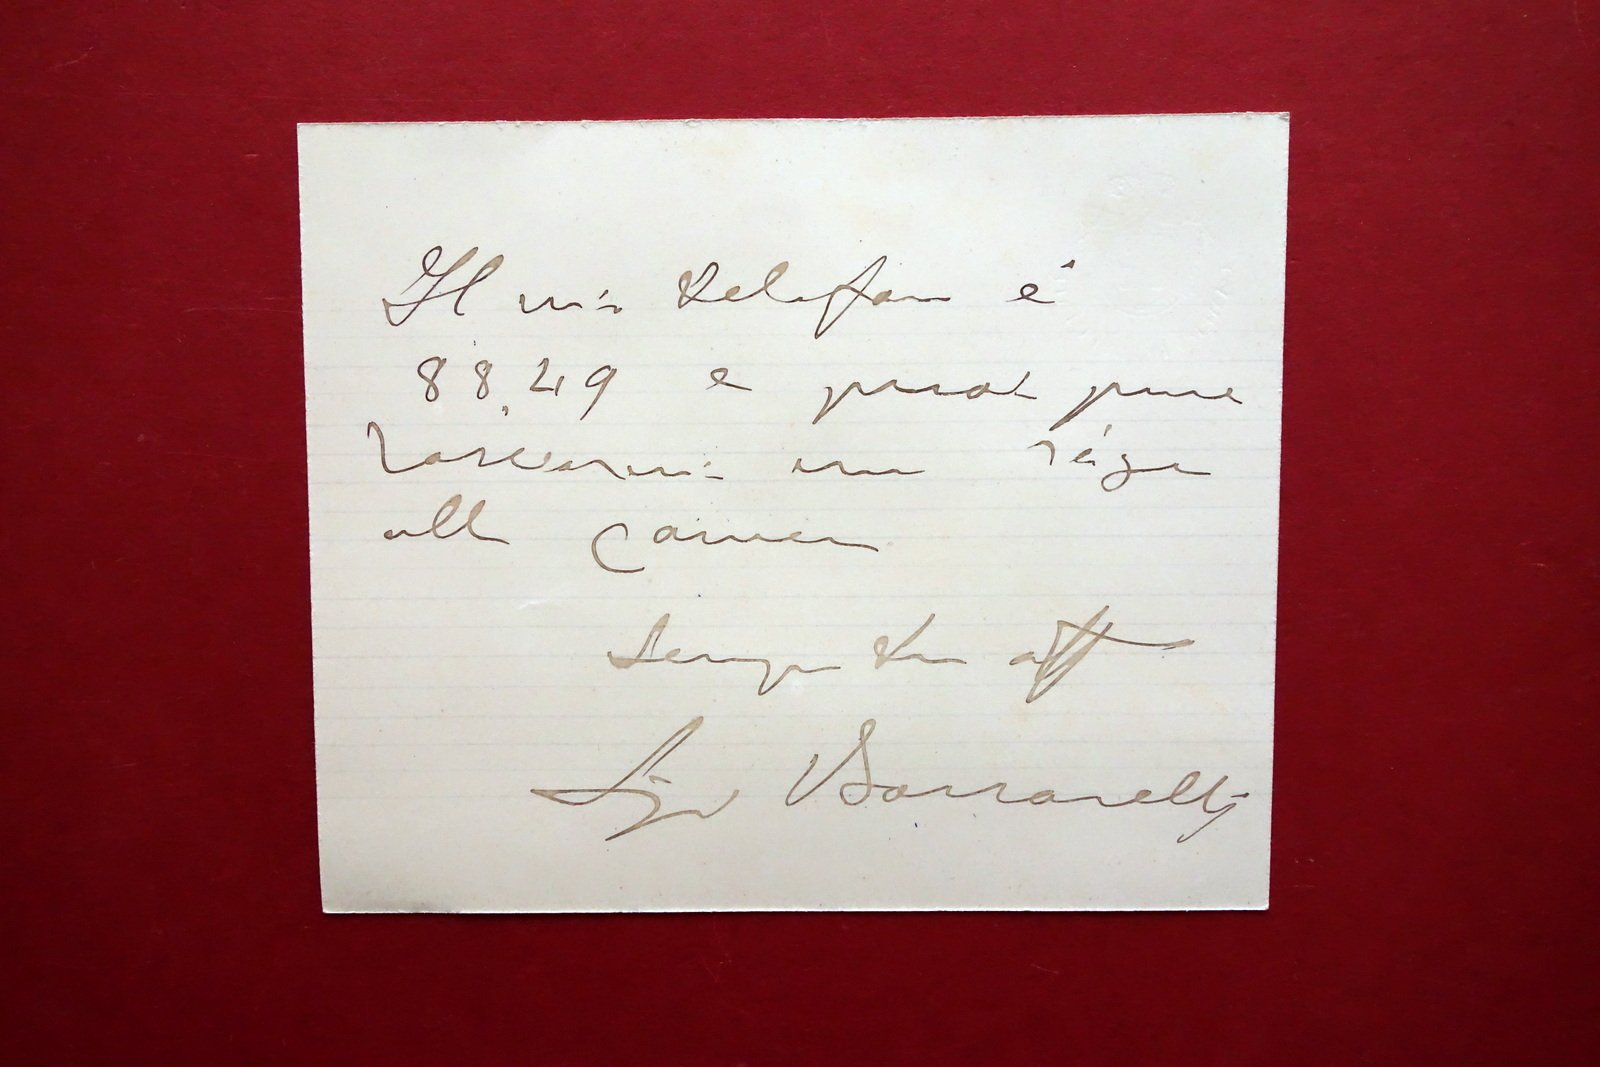 Il mio telefono è
88,49 e potrete pure
lasciarmi un rigo
alla Camera
Sempre tuo aff
Luigi Borsarelli